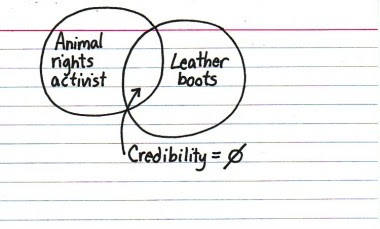 Animal
rights
activist
Leather
boots
Credibility = ∅